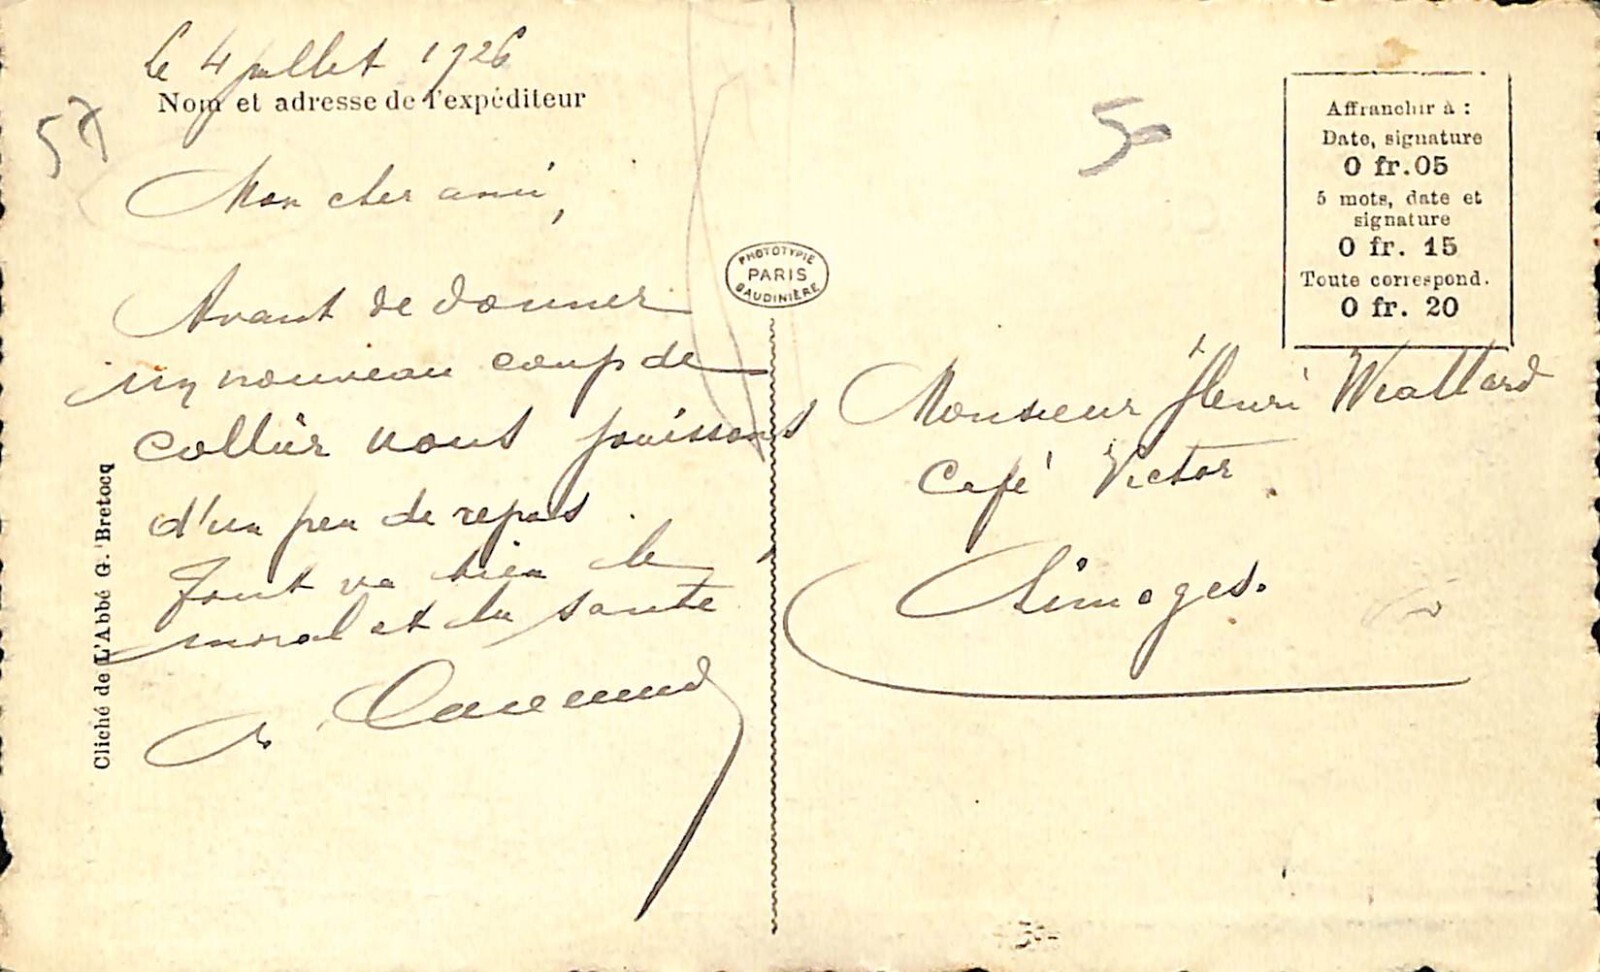 le 4 juillet 1926
Nom et adresse de l'expéditeur
57
Mon cher ami,
Avant de donner
un nouveau coup de
collier nous jouissons
d'un peu de repos.
Tout va bien le
moral et la santé
Cliché de L'Abbé G. Bretocq
PHOTOTYPIE
PARIS
BAUDINIÈRE
50
Affranchir à :
Date, signature
0 fr.05
5 mots, date et
signature
0 fr. 15
Toute correspond.
0 fr. 20
Monsieur Henri
Café Victor
Limoges.